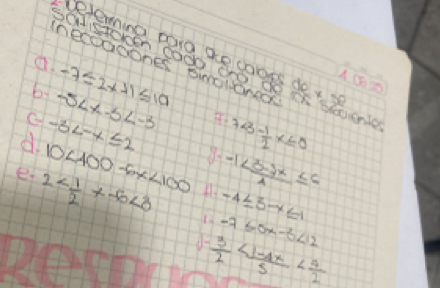 Determina para que valores de x se
satisfacen cada una de las siguientes
inecuaciones simultáneas
a. -7 ≤ 2x+1 ≤ 19
b. -8 < x-5 < -3
c. -3 < -x ≤ 2
d. 10 < 400-5x < 100
e. 2 < 1/2 x-5 < 8
7 < 3 - 1/2 x ≤ 8
g. -1 < 3-3x/4 ≤ 6
-4 ≤ 5-x ≤ 1
-7 ≤ 5x-3 < 12
3/2 < 1-4x/5 < 7/2